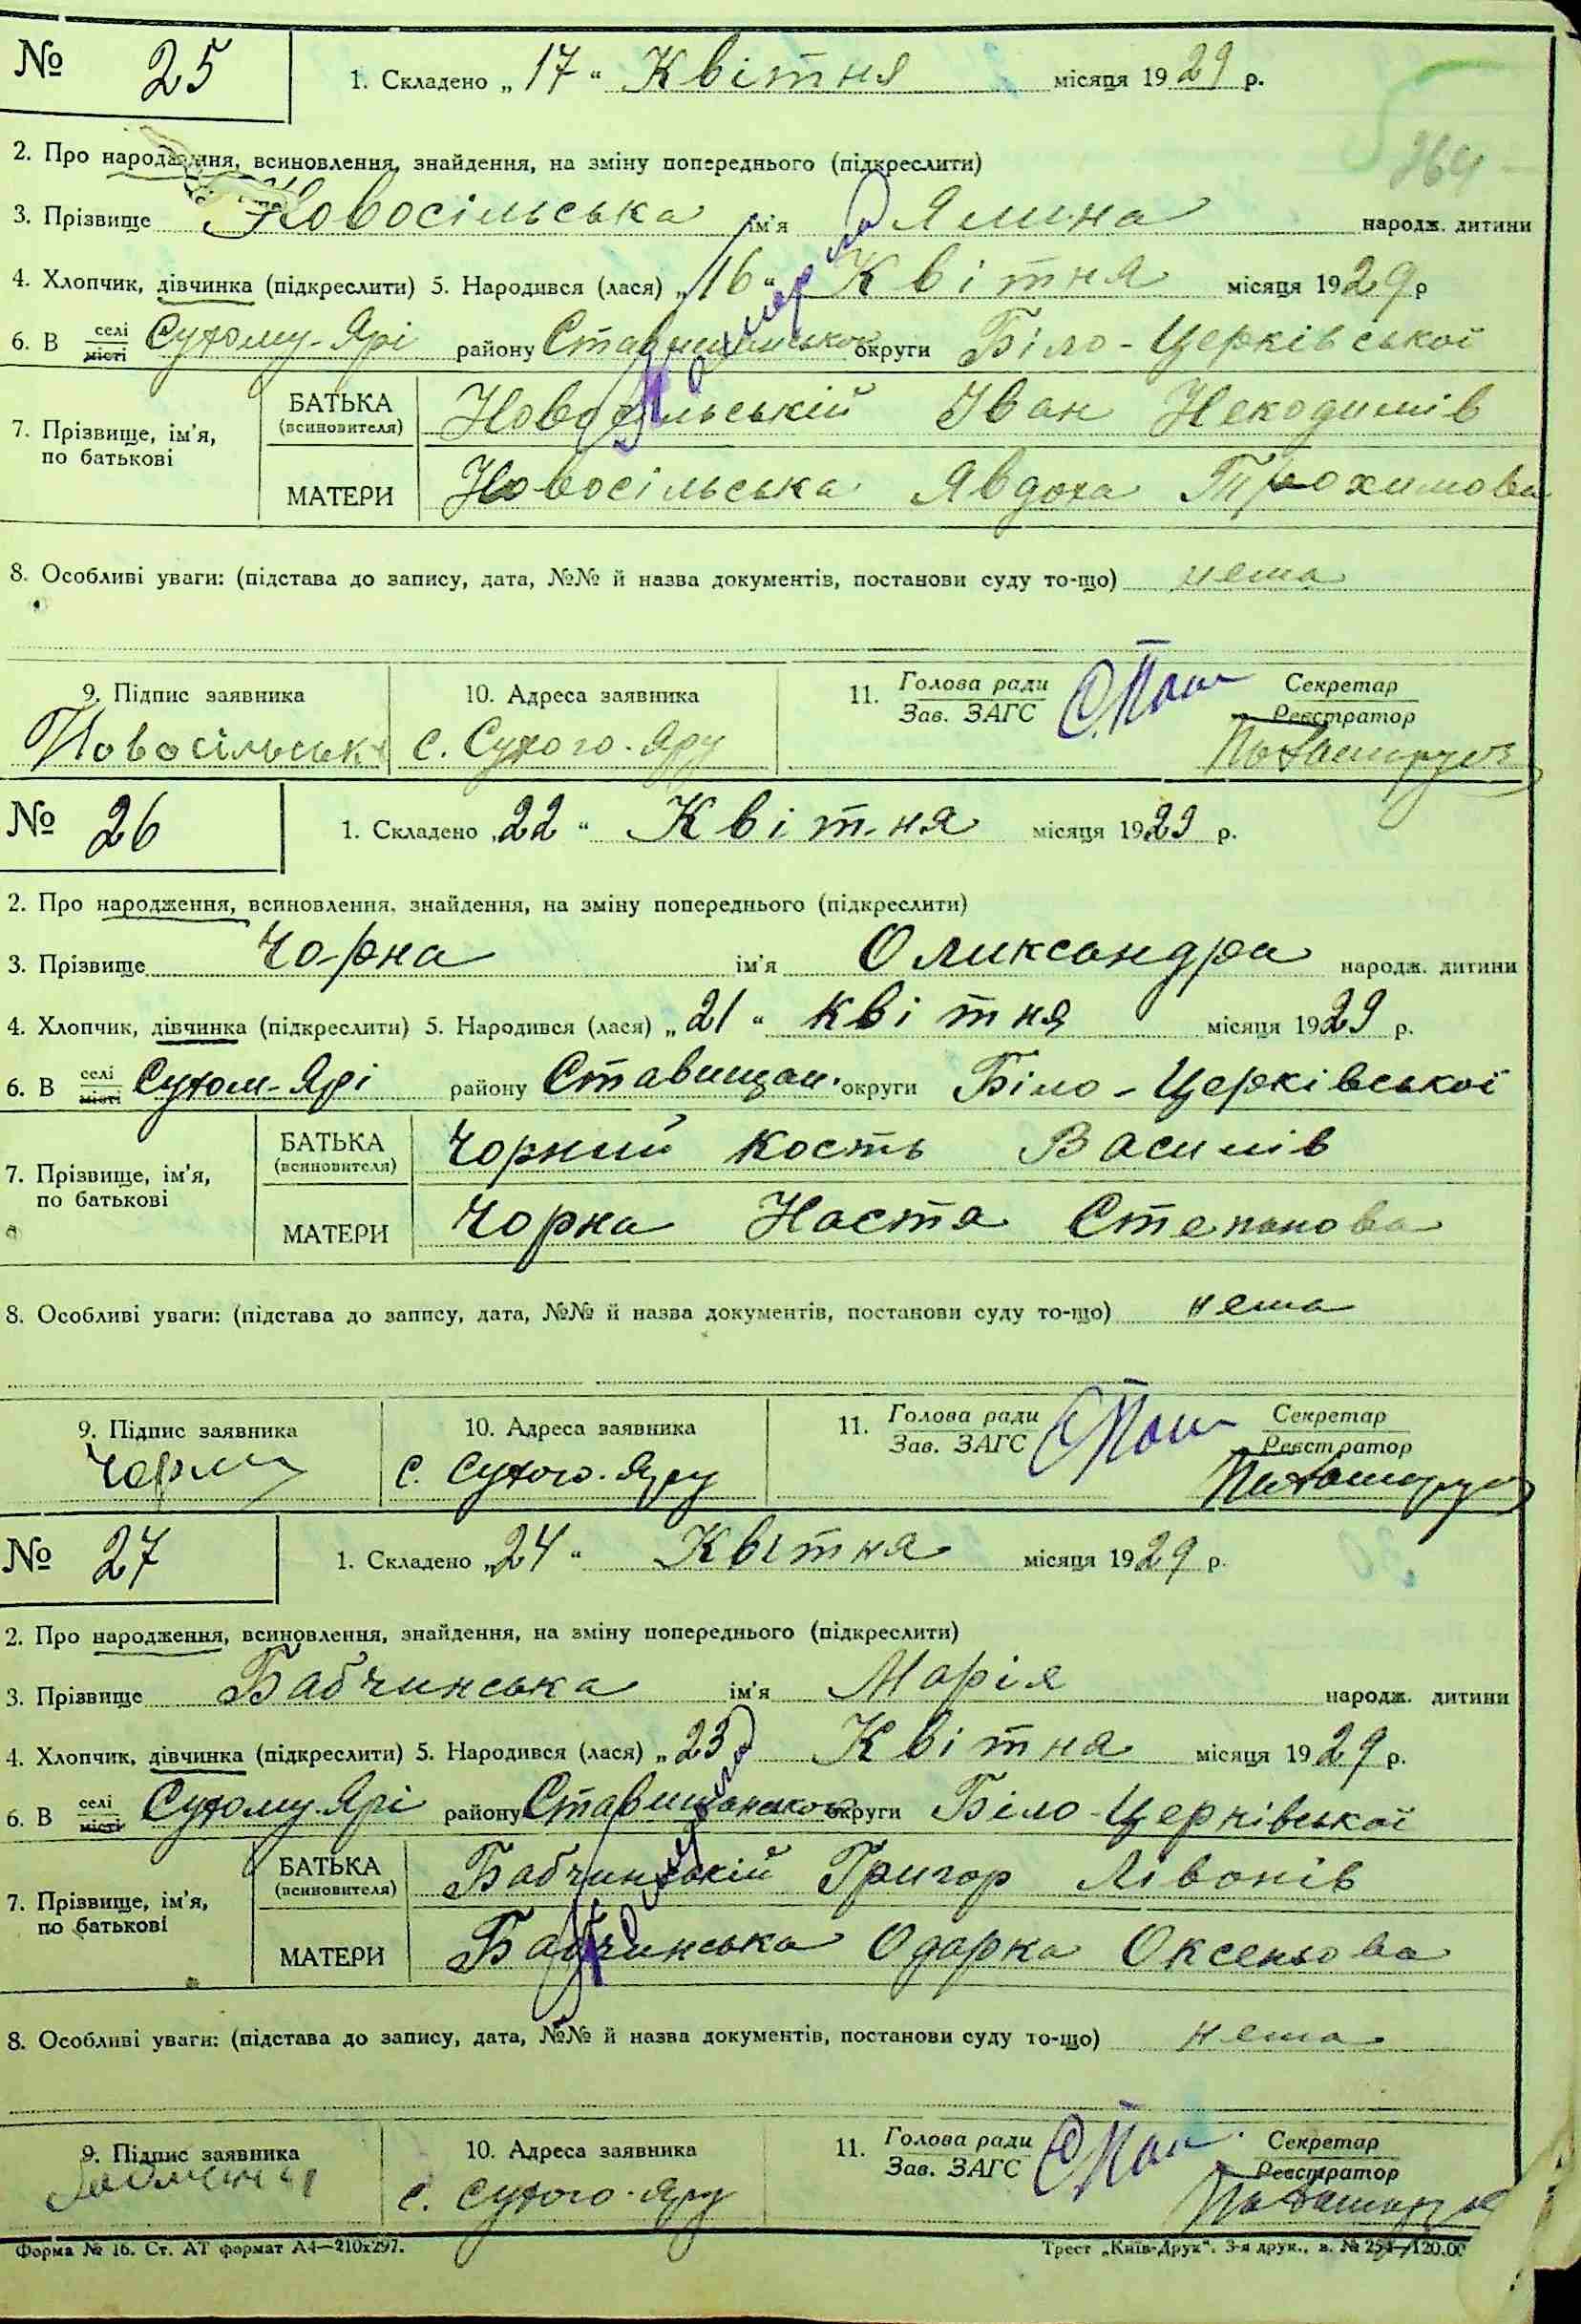 № 25
1. Складено „17“ Квітня місяця 1929 р.
364
2. Про народження, всиновлення, знайдення, на зміну попереднього (підкреслити)
3. Прізвище Новосільська ім'я Ялина народж. дитини
4. Хлопчик, дівчинка (підкреслити) 5. Народився (лася) „16“ Квітня місяця 1929 р
6. В селі місті Сухому-Ярі району Ставищанської округи Біло-Церківської
Померла
7. Прізвище, ім'я, по батькові
БАТЬКА (всиновителя) Новосільській Іван Некодимів
МАТЕРИ Новосільська Явдоха Трохимова
8. Особливі уваги: (підстава до запису, дата, №№ й назва документів, постанови суду то-що) нема
9. Підпис заявника 10. Адреса заявника 11. Голова ради Зав. ЗАГС Секретар Реєстратор
Новосільськ с. Сухого-Яру
№ 26
1. Складено „22“ Квітня місяця 1929 р.
2. Про народження, всиновлення, знайдення, на зміну попереднього (підкреслити)
3. Прізвище Чорна ім'я Оликсандра народж. дитини
4. Хлопчик, дівчинка (підкреслити) 5. Народився (лася) „21“ квітня місяця 1929 р.
6. В селі місті Сухом-Ярі району Ставищан. округи Біло-Церківської
7. Прізвище, ім'я, по батькові
БАТЬКА (всиновителя) Чорний Кость Василів
МАТЕРИ Чорна Настя Степанова
8. Особливі уваги: (підстава до запису, дата, №№ й назва документів, постанови суду то-що) нема
9. Підпис заявника 10. Адреса заявника 11. Голова ради Зав. ЗАГС Секретар Реєстратор
с. Сухого-Яру
№ 27
1. Складено „24“ Квітня місяця 1929 р.
2. Про народження, всиновлення, знайдення, на зміну попереднього (підкреслити)
3. Прізвище Бабчинська ім'я Марія народж. дитини
4. Хлопчик, дівчинка (підкреслити) 5. Народився (лася) „23“ Квітня місяця 1929 р.
6. В селі місті Сухому-Ярі району Ставищанської округи Біло-Церківської
Померла
7. Прізвище, ім'я, по батькові
БАТЬКА (всиновителя) Бабчинській Григор Лівонів
МАТЕРИ Бабчинська Одарка Оксеньова
8. Особливі уваги: (підстава до запису, дата, №№ й назва документів, постанови суду то-що) нема
9. Підпис заявника 10. Адреса заявника 11. Голова ради Зав. ЗАГС Секретар Реєстратор
с. Сухого-Яру
Форма № 16. Ст. АТ формат А4—210х297. Трест „Київ-Друк“. 3-я друк., з.